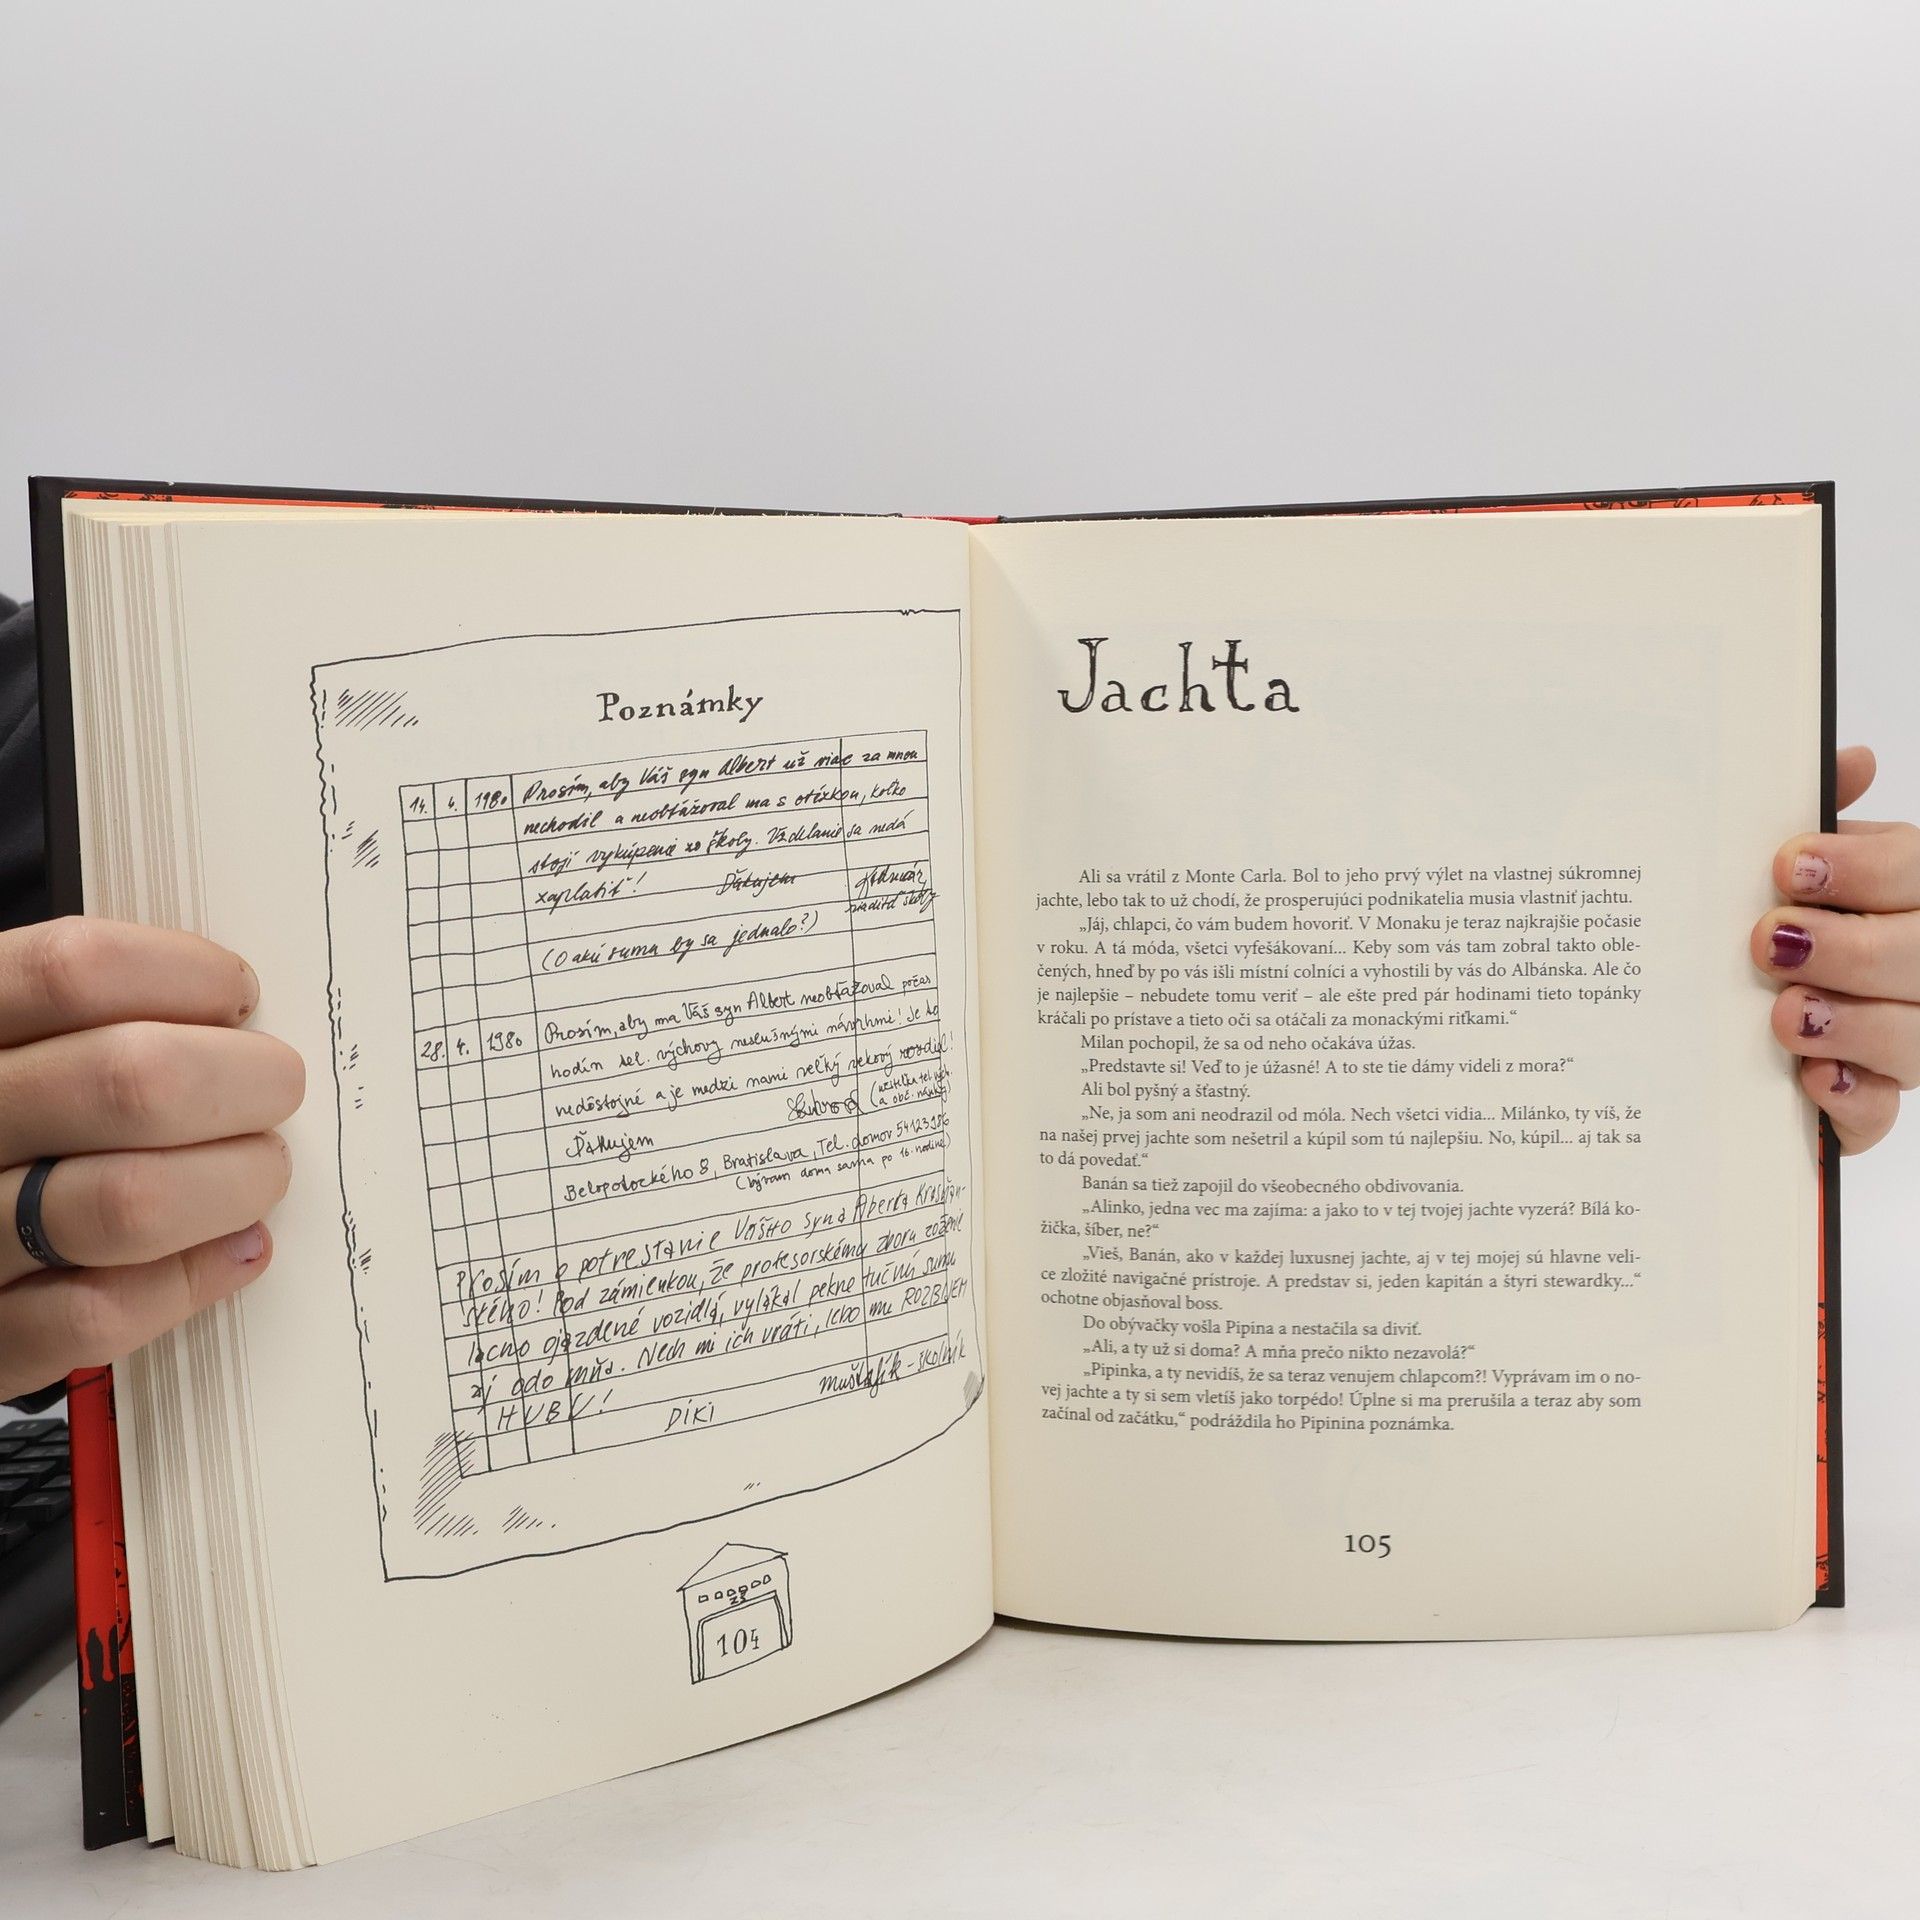 Poznámky
14. 4. 1980 Prosím, aby Váš syn Albert už viac za mnou
nechodil a neobťažoval ma s otázkou, koľko
stojí vykúpenie zo školy. Vzdelanie sa nedá
zaplatiť! Ďakujem
riaditeľ školy
(O akú sumu by sa jednalo?)
28. 4. 1980 Prosím, aby ma Váš syn Albert neobťažoval počas
hodín tel. výchovy neslušnými návrhmi! Je to
nedôstojné a je medzi nami veľký vekový rozdiel!
(učiteľka tel. vých.
Ďakujem
a obč. náuky)
Belopotockého 8, Bratislava, Tel. domov 54123186
(bývam doma sama po 16. hodine)
Prosím o potrestanie Vášho syna Alberta Krasňan-
ského! Pod zámienkou, že profesorskému zboru zoženie
lacno ojazdené vozidlá, vylákal pekne tučnú sumu
aj odo mňa. Nech mi ich vráti, lebo mu ROZBIJEM
HUBU!
DÍKI
Muštafík - školník
ZŠ
104
Jachta
Ali sa vrátil z Monte Carla. Bol to jeho prvý výlet na vlastnej súkromnej
jachte, lebo tak to už chodí, že prosperujúci podnikatelia musia vlastniť jachtu.
„Jáj, chlapci, čo vám budem hovoriť. V Monaku je teraz najkrajšie počasie
v roku. A tá móda, všetci vyfešákovaní... Keby som vás tam zobral takto oble-
čených, hneď by po vás išli místní colníci a vyhostili by vás do Albánska. Ale čo
je najlepšie – nebudete tomu veriť – ale ešte pred pár hodinami tieto topánky
kráčali po prístave a tieto oči sa otáčali za monackými riťkami.“
Milan pochopil, že sa od neho očakáva úžas.
„Predstavte si! Veď to je úžasné! A to ste tie dámy videli z mora?“
Ali bol pyšný a šťastný.
„Ne, ja som ani neodrazil od móla. Nech všetci vidia... Milánko, ty víš, že
na našej prvej jachte som nešetril a kúpil som tú najlepšiu. No, kúpil... aj tak sa
to dá povedať.“
Banán sa tiež zapojil do všeobecného obdivovania.
„Alinko, jedna vec ma zajíma: a jako to v tej tvojej jachte vyzerá? Bílá ko-
žička, šíber, ne?“
„Vieš, Banán, ako v každej luxusnej jachte, aj v tej mojej sú hlavne veli-
ce zložité navigačné prístroje. A predstav si, jeden kapitán a štyri stewardky...“
ochotne objasňoval boss.
Do obývačky vošla Pipina a nestačila sa diviť.
„Ali, a ty už si doma? A mňa prečo nikto nezavolá?“
„Pipinka, a ty nevidíš, že sa teraz venujem chlapcom?! Vyprávam im o no-
vej jachte a ty si sem vletíš jako torpédo! Úplne si ma prerušila a teraz aby som
začínal od začátku,“ podráždila ho Pipinina poznámka.
105